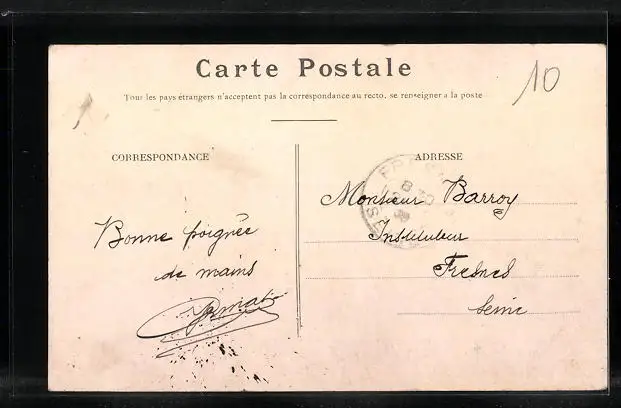 Carte Postale
Tous les pays étrangers n'acceptent pas la correspondance au recto, se renseigner a la poste
10
CORRESPONDANCE
ADRESSE
Bonne poignée
de mains
Monsieur Barroy
Instituteur
Fresnes
Seine